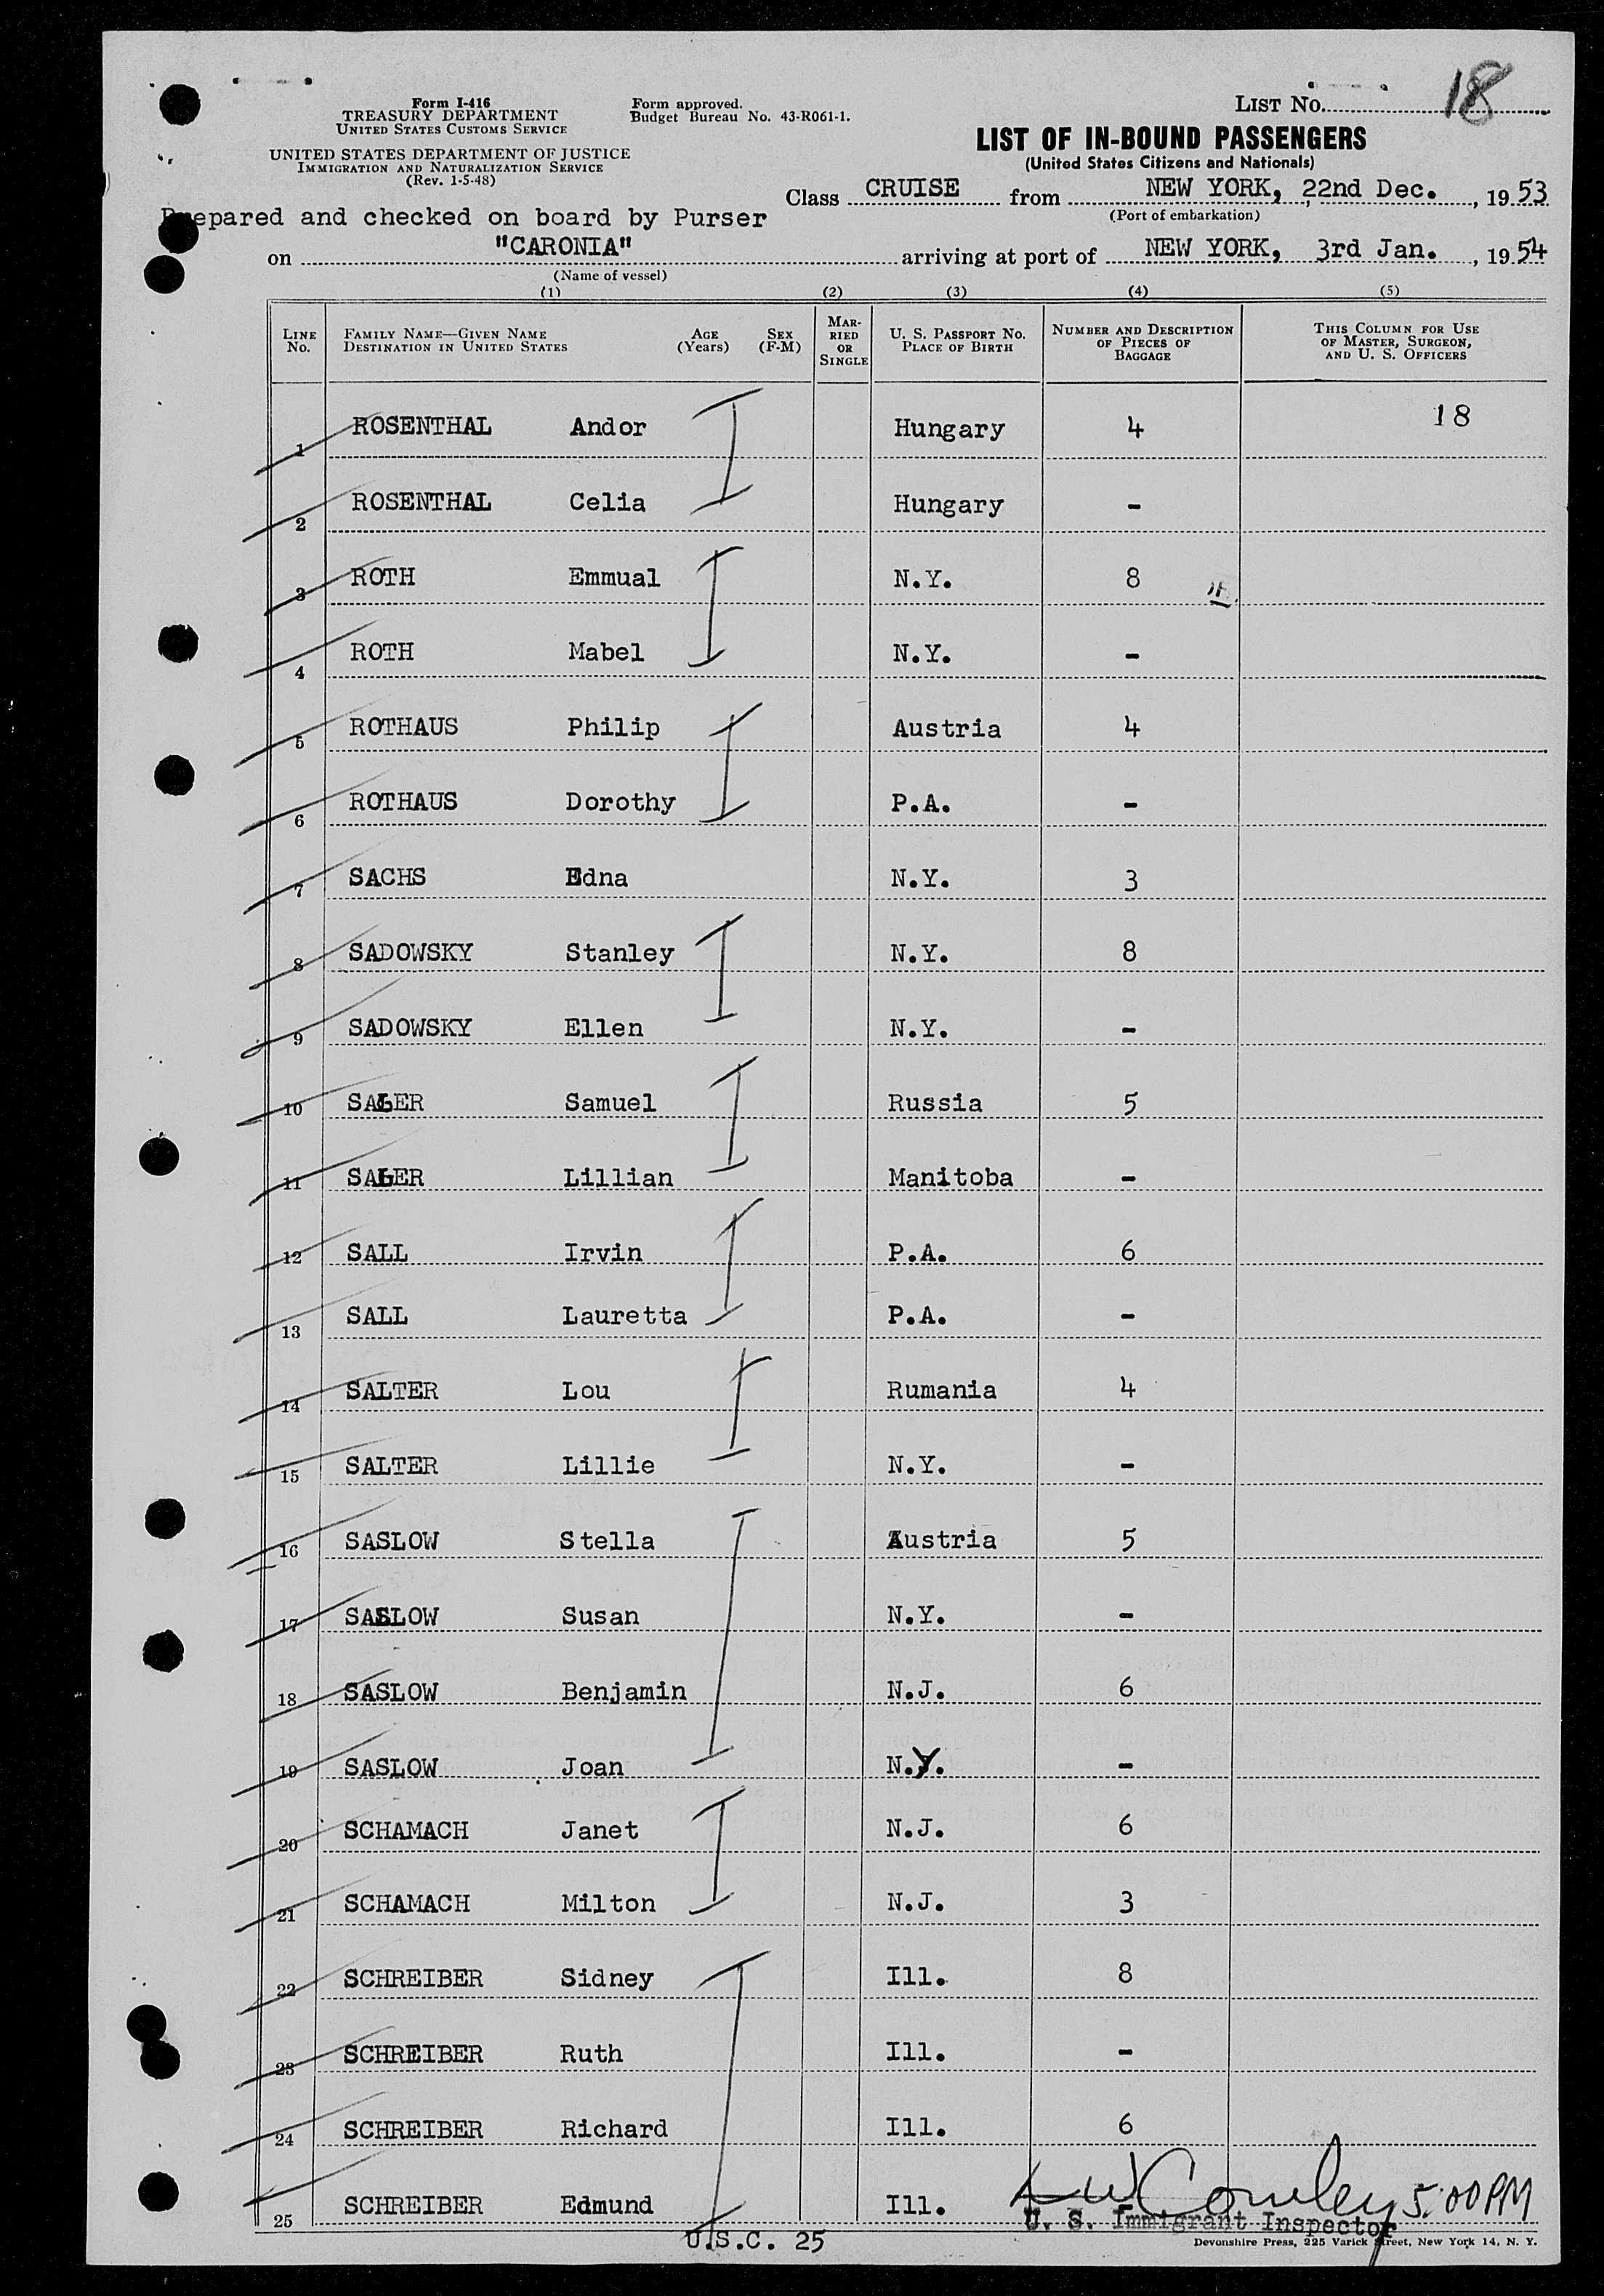 LIST NO. 18
Form I-416
TREASURY DEPARTMENT
UNITED STATES CUSTOMS SERVICE
UNITED STATES DEPARTMENT OF JUSTICE
IMMIGRATION AND NATURALIZATION SERVICE
(Rev. 1-5-48)
Form approved.
Budget Bureau No. 43-R061-1.
LIST OF IN-BOUND PASSENGERS
(United States Citizens and Nationals)
Class CRUISE from NEW YORK, 22nd Dec., 1953
(Port of embarkation)
Prepared and checked on board by Purser
on "CARONIA" arriving at port of NEW YORK, 3rd Jan., 1954
(Name of vessel)
(1) (2) (3) (4) (5)
LINE NO. FAMILY NAME—GIVEN NAME DESTINATION IN UNITED STATES AGE (Years) SEX (F-M) MARRIED OR SINGLE U. S. PASSPORT NO. PLACE OF BIRTH NUMBER AND DESCRIPTION OF PIECES OF BAGGAGE THIS COLUMN FOR USE OF MASTER, SURGEON, AND U. S. OFFICERS
1 ROSENTHAL Andor Hungary 4 18
2 ROSENTHAL Celia Hungary -
3 ROTH Emmual N.Y. 8
4 ROTH Mabel N.Y. -
5 ROTHAUS Philip Austria 4
6 ROTHAUS Dorothy P.A. -
7 SACHS Edna N.Y. 3
8 SADOWSKY Stanley N.Y. 8
9 SADOWSKY Ellen N.Y. -
10 SAGER Samuel Russia 5
11 SAGER Lillian Manitoba -
12 SALL Irvin P.A. 6
13 SALL Lauretta P.A. -
14 SALTER Lou Rumania 4
15 SALTER Lillie N.Y. -
16 SASLOW Stella Austria 5
17 SASLOW Susan N.Y. -
18 SASLOW Benjamin N.J. 6
19 SASLOW Joan N.Y. -
20 SCHAMACH Janet N.J. 6
21 SCHAMACH Milton N.J. 3
22 SCHREIBER Sidney Ill. 8
23 SCHREIBER Ruth Ill. -
24 SCHREIBER Richard Ill. 6
25 SCHREIBER Edmund Ill.
5:00 PM
U. S. Immigrant Inspector
U.S.C. 25
Devonshire Press, 225 Varick Street, New York 14, N. Y.